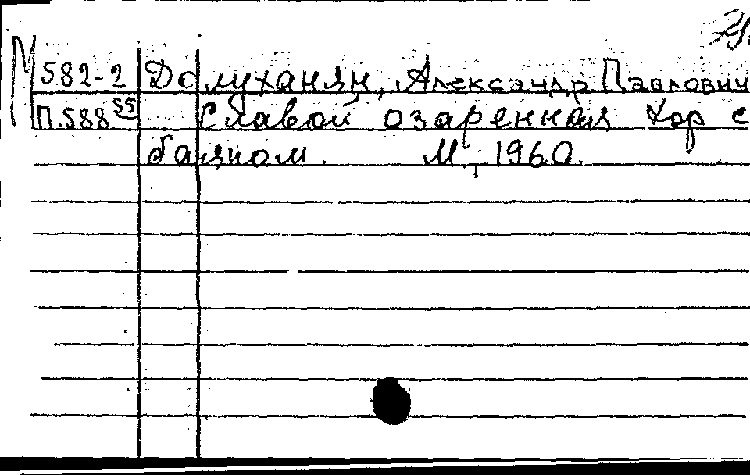 М 582-2 Долуханян, Александр Павлович
П.588 55 Славой озаренная Хор с
баяном. М., 1960.